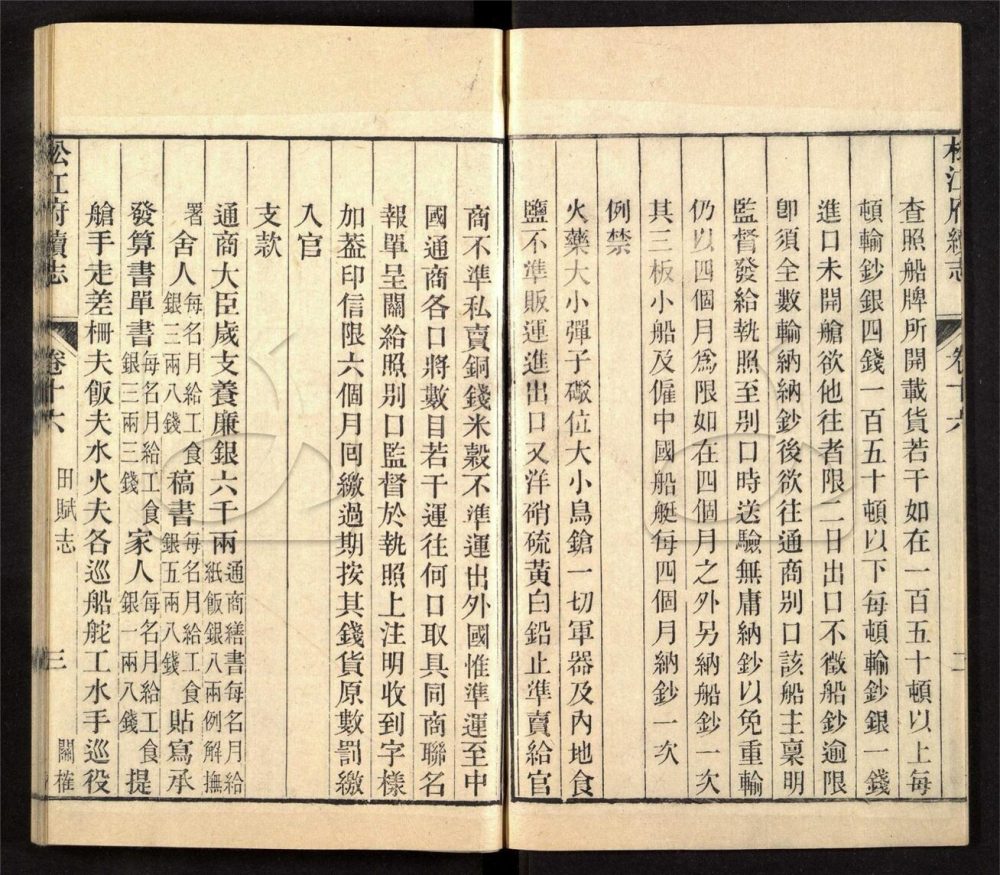 松江府續志
卷十六
二
查照船牌所開載貨若干如在一百五十頓以上每
頓輸鈔銀四錢一百五十頓以下每頓輸鈔銀一錢
進口未開艙欲他往者限二日出口不徵船鈔逾限
卽須全數輸納納鈔後欲往通商別口該船主稟明
監督發給執照至別口時送驗無庸納鈔以免重輸
仍以四個月爲限如在四個月之外另納船鈔一次
其三板小船及僱中國船艇每四個月納鈔一次
例禁
火藥大小彈子礮位大小鳥鎗一切軍器及內地食
鹽不準販運進出口又洋硝硫黃白鉛止準賣給官
商不準私賣銅錢米穀不準運出外國惟準運至中
國通商各口將數目若干運往何口取具同商聯名
報單呈關給照別口監督於執照上注明收到字樣
加蓋印信限六個月囘繳過期按其錢貨原數罰繳
入官
支款
通商大臣歲支養廉銀六千兩通商繕書每名月給紙飯銀八兩例解撫
署舍人每名月給工食銀三兩八錢稿書每名月給工食銀五兩八錢貼寫承
發算書單書每名月給工食銀三兩三錢家人每名月給工食銀一兩八錢提
艙手走差柵夫飯夫水火夫各巡船舵工水手巡役
松江府續志
卷十六
田賦志
三
關榷